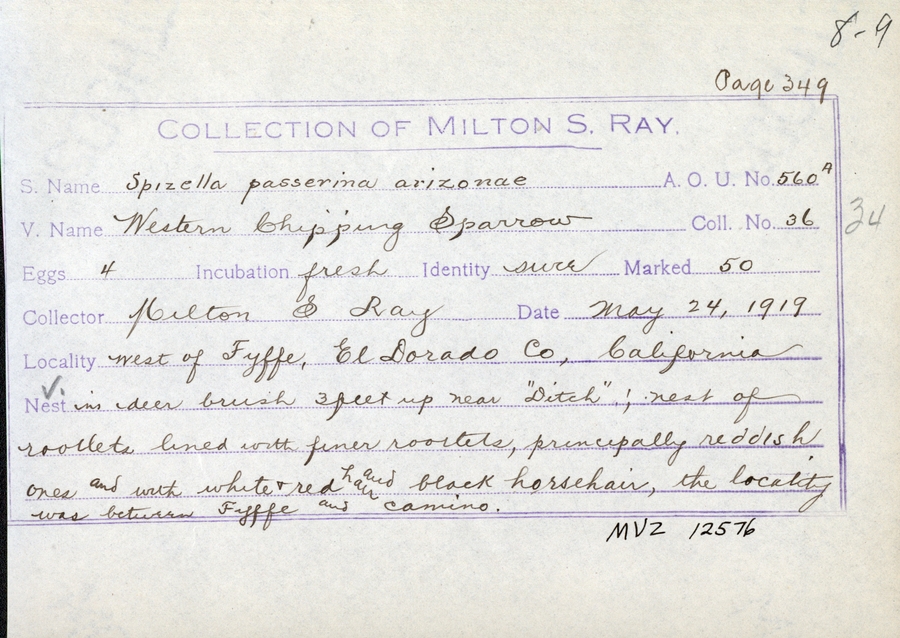 8-9
Page 349
COLLECTION OF MILTON S. RAY.
S. Name Spizella passerina arizonae A. O. U. No. 560A
V. Name Western Chipping Sparrow Coll. No. 36
34
Eggs 4 Incubation fresh Identity sure Marked 50
Collector Milton S Ray Date May 24, 1919
Locality west of Fyffe, El Dorado Co, California
Nest in deer brush 3 feet up near "Ditch"; nest of
rootlets lined with finer rootlets, principally reddish
ones and with white + red hair and black horsehair, the locality
was between Fyffe and Camino.
MVZ 12576